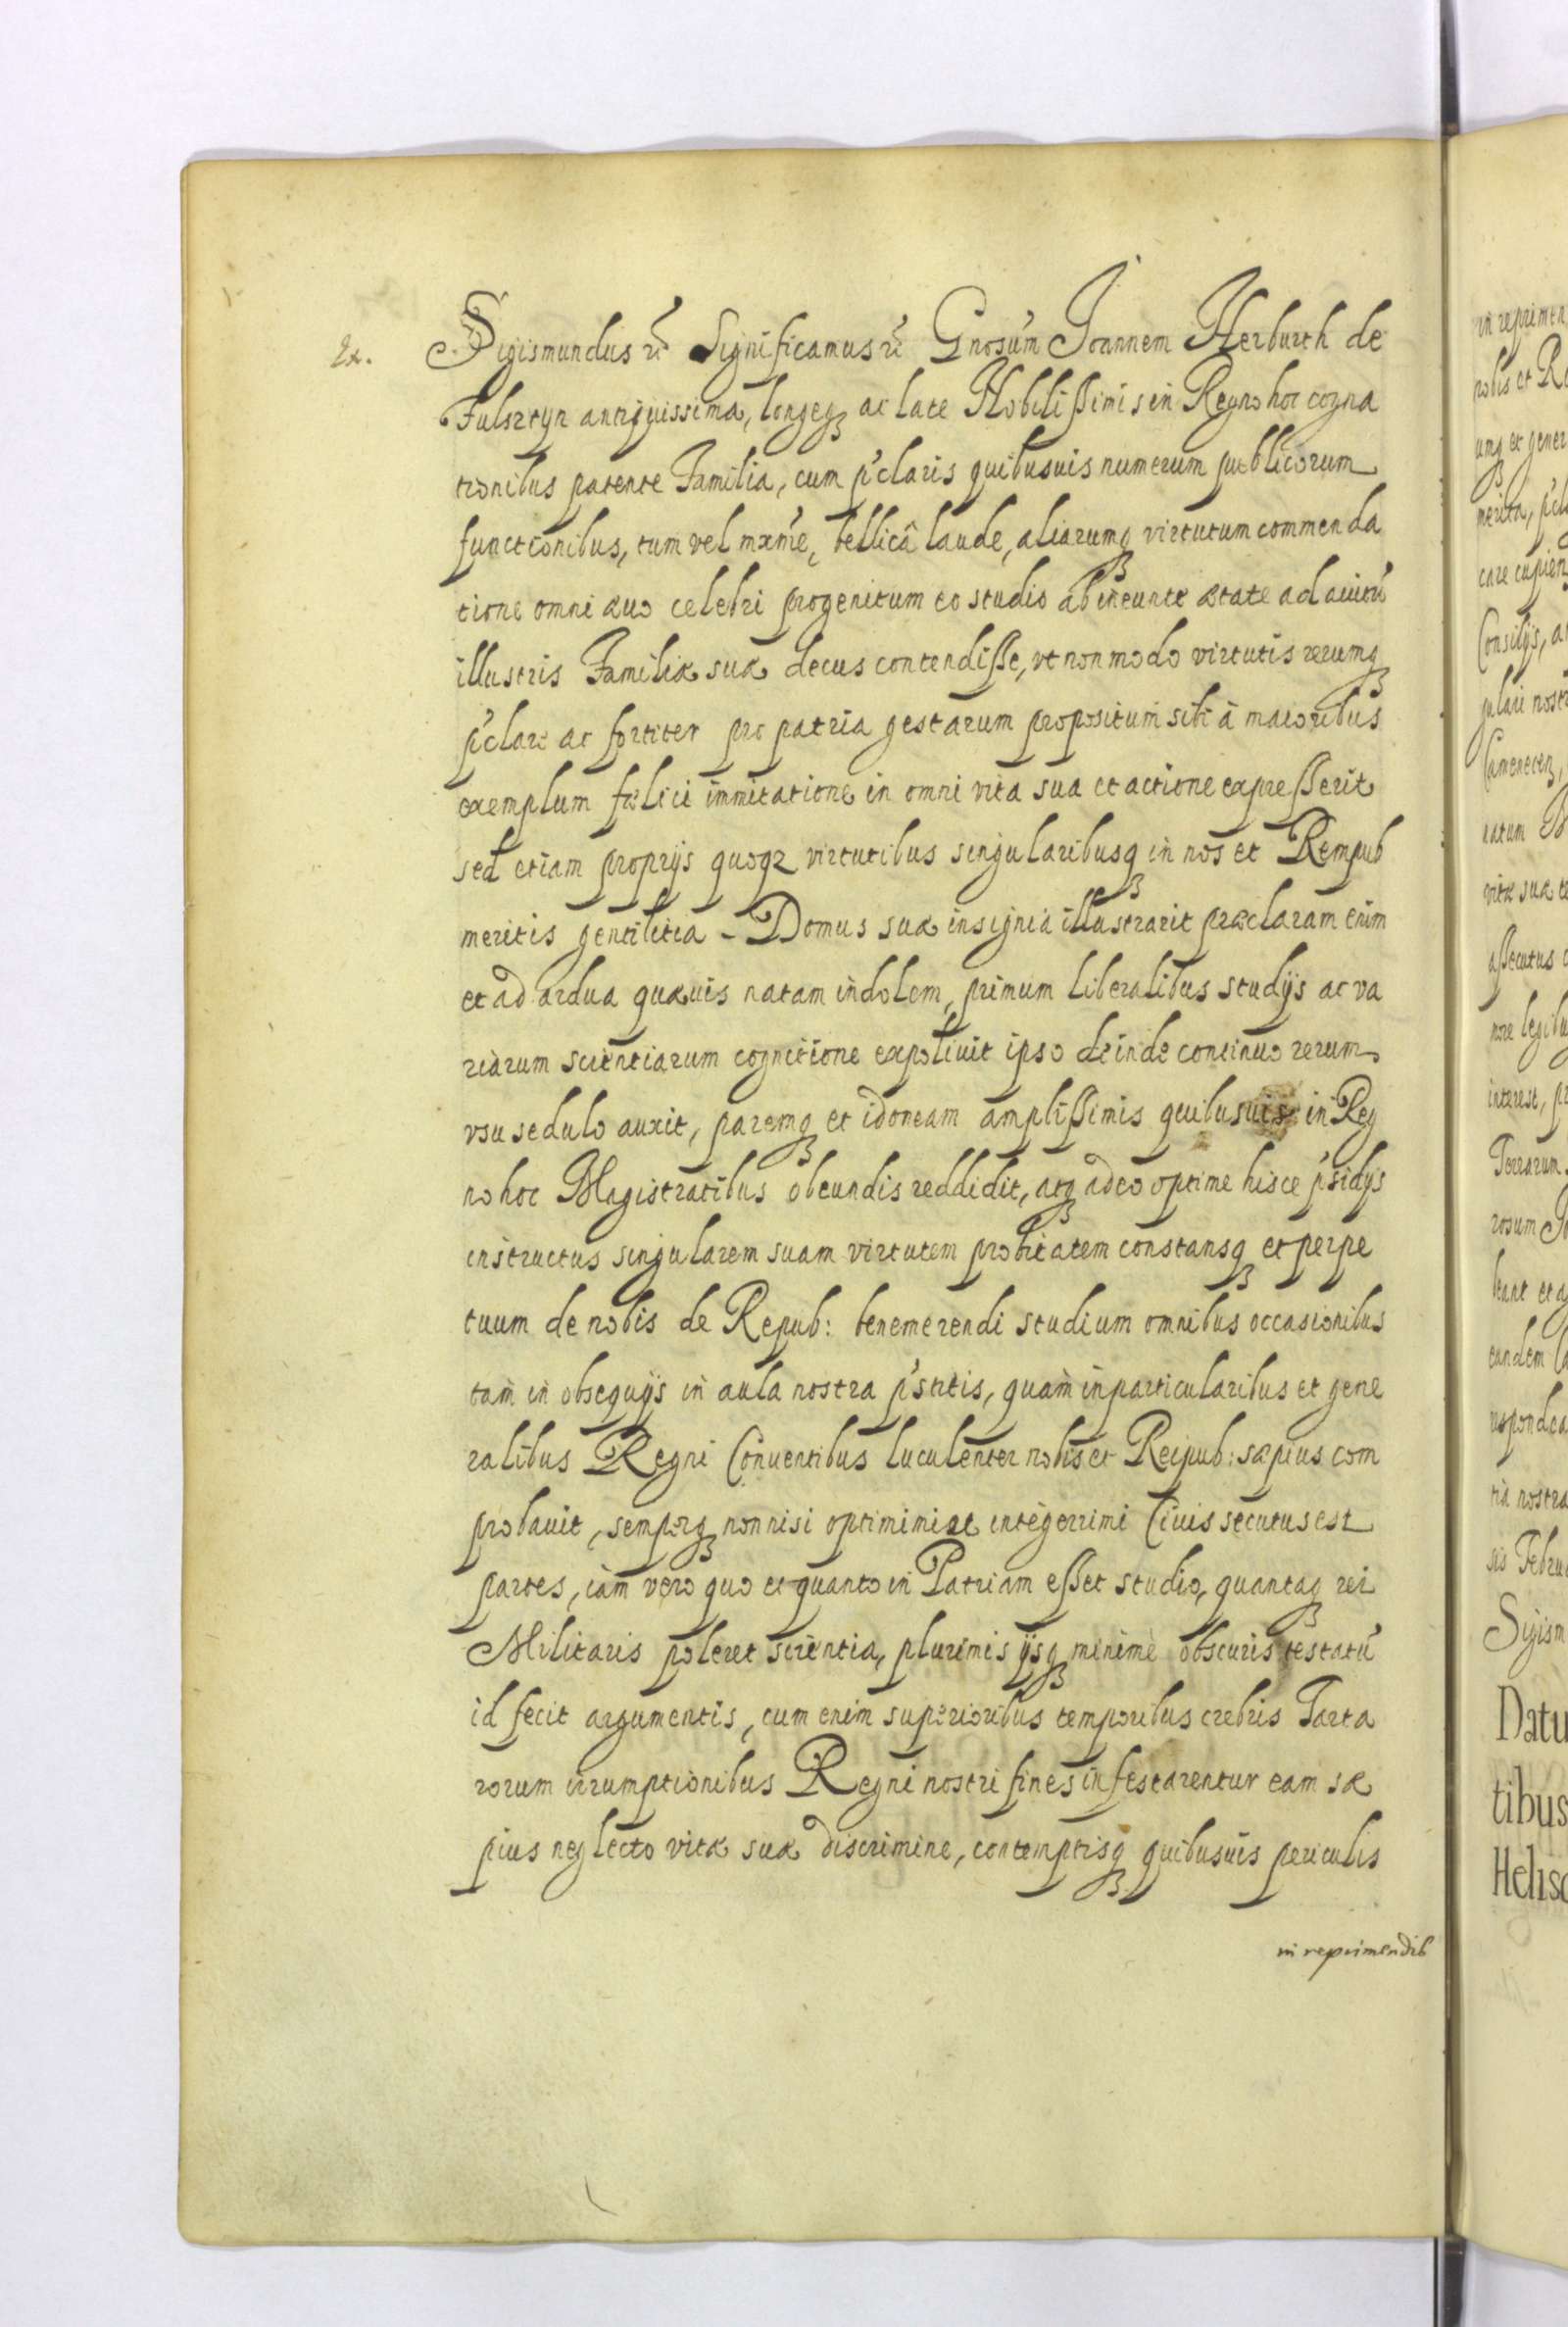 Sigismundus rc̃ Significamus rc̃ Gnosum̃ Joannem Herburth de
Fulsztyn antiquissima, longeq₃ ac late Nobilissimis in Regno hoc cogna
tionibus patente Familia, cum p̓claris quibusuis numerum publicorum
functionibus, tum vel mxme, bellicâ laude, aliarumq₃ virtutum commenda
tione omni æuo celebri progenitum eo studio ab ineunte ætate ad auitũ
illustris Familiæ suæ decus contendisse, vt non modo virtutis rerumq₃
p̓clare ac fortiter pro patria gestarum propositum sibi à maioribus
exemplum fœlici immitatione in omni vita sua et actione expresserit
sed etiam proprijs quoqz virtutibus singularibusq₃ in nos et Rempub
meritis gentilitia Domus suæ insignia illustrarit præclaram enim
et ad ardua quæuis natam indolem, primum liberalibus studijs ac va
riarum scientiarum cognitione expoliuit ipso deinde continuo rerum
vsu sedulo auxit, paremq₃ et idoneam amplissimis quibusuis in Reg
no hoc Magistratibus obeundis reddidit, atq₃ adeo optime hisce p̓sidijs
instructus singularem suam virtutem probitatem constansq₃ et perpe
tuum de nobis de Repub: benemerendi studium omnibus occasionibus
tam in obsequijs in aula nostra p̓stitis, quam in particularibus et gene
ralibus Regni Conuentibus luculenter nobis et Reipub: sæpius com
probauit, semperq₃ non nisi optimi integerrimi Ciuis secutus est
partes, iam vero quo et quanto in Patriam esset studio, quantaq₃ rei
Militaris poleret scientia, plurimis ijsq₃ minime obscuris testatũ
id fecit argumentis, cum enim superioribus temporibus crebris Tarta
rorum irrumptionibus Regni nostri fines infestarentur eam sæ
pius neglecto vitæ suæ discrimine, contemptisq₃ quibusuis periculis
in reprimendis
in reprimen
nobis et R
et gener
merita, p̓cl
care cupien
Consilijs, a
nostr
Camenecen,
ratum
vitæ suæ
assecutus
nore legibu
interest, p
Terrarum
rosum
eant et a
eandem
respondea
tia nostra
Februa
Sigism
Datu
tibus
Helisc